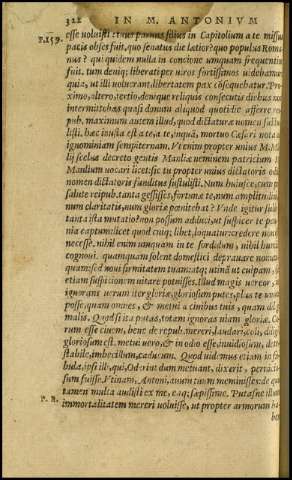 322 IN M. ANTONIVM
P.159. esse voluisti: tuus paruus filius in Capitolium a te missus
pacis obses fuit, quo senatus die lætior? quo populus Roma
nus? qui quidem nulla in concione umquam frequentior
fuit. tum deniq; liberati per uiros fortissimos uidebamur:
quia, ut illi uoluerant, libertatem pax cõsequebatur. Pro
ximo, altero, tertio, denique reliquis consecutis diebus non
intermittebas quasi donum aliquod quotidie afferre reip.
pub. maximum autem illud, quod dictaturæ nomen sustu
listi. hæc inusta est a te, a te, inquã, mortuo Cæsari nota ad
ignominiam sempiternam. Vt enim propter unius M. Man
lij scelus decreto gentis Manliæ neminem patricium M.
Manlium uocari licet: sic tu propter unius dictatoris odium
nomen dictatoris funditus sustulisti. Num huiusce, cum pro
salute reipub. tanta gessisses, fortunæ te, num amplitudinis,
num claritatis, num gloriæ pœnitebat? Vnde igitur subito
tanta ista mutatio? non possum adduci, ut suspicer te pecu
nia captum: licet quod cuiq; libet, loquatur: credere non est
necesse. nihil enim umquam in te sordidum, nihil humile
cognoui. quamquam solent domestici deprauare nonnum
quam: sed noui firmitatem tuam: atq; utinã ut culpam, sic
etiam suspicionem uitare potuisses. Illud magis uereor, ne
ignorans uerum iter gloriæ, gloriosum putes, plus te unum
posse, quam omnes, & metui a ciuibus tuis, quam diligi
malis. Quod si ita putas, totam ignoras uiam gloriæ. Ca
rum esse ciuem, bene de repub. mereri, laudari, coli, diligi,
gloriosum est. metui uero, & in odio esse, inuidiosum, dete
stabile, imbecillum, caducum. Quod uidemus etiam in fa
bula, ipsi illi, qui, Oderint dum metuant, dixerit, pernicio
sum fuisse. Vtinam, Antoni, auum tuum meminisses: de quo
tamen multa audisti ex me, eaq; sæpissime. Putasne illum
P. R. immortalitatem mereri uoluisse, ut propter armorum ha
ben